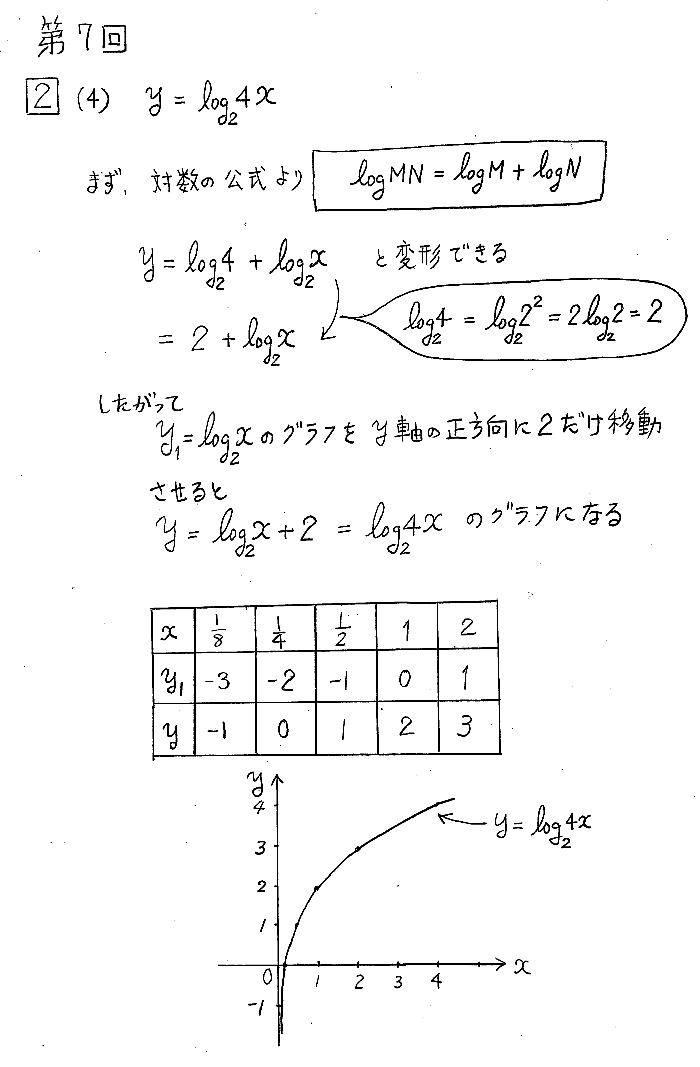 第7回
2 (4) y = log₂4x
まず、対数の公式より logMN = logM + logN
y = log₂4 + log₂x と変形できる
= 2 + log₂x log₂4 = log₂2² = 2log₂2 = 2
したがって
y₁ = log₂x のグラフを y軸の正方向に2だけ移動
させると
y = log₂x + 2 = log₂4x のグラフになる
x 1/8 1/4 1/2 1 2
y₁ -3 -2 -1 0 1
y -1 0 1 2 3
y
4
y = log₂4x
3
2
1
0 1 2 3 4 x
-1